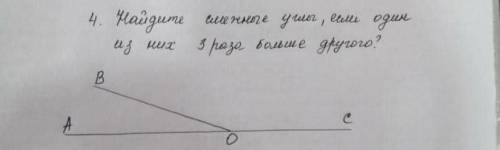 4. Найдите смежные углы, если один
из них 3 раза больше другого?
B
A
O
C